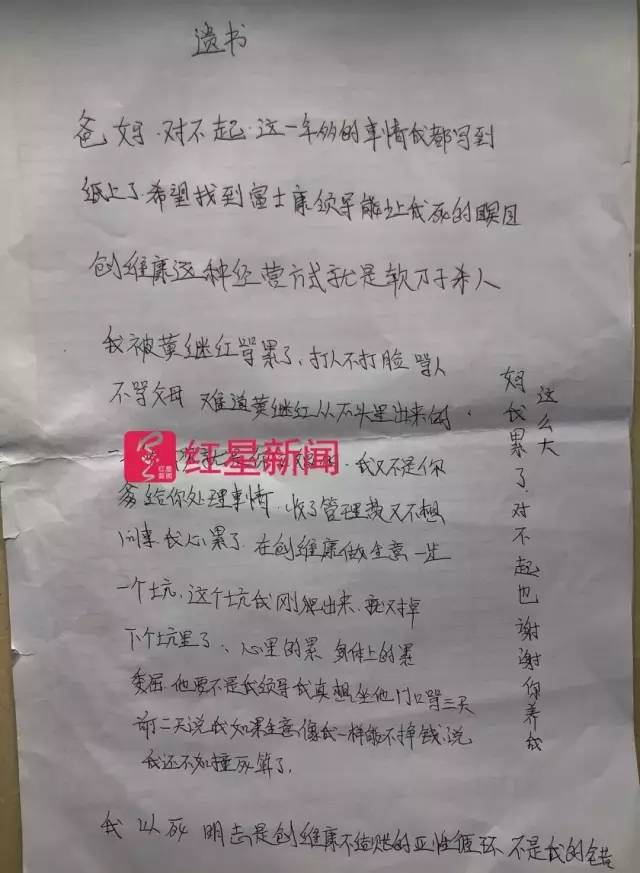 遗书
爸 妈 对不起 这一年多的事情我都写到
纸上了 希望找到富士康领导能让我死的瞑目
创维康这种经营方式就是软刀子杀人
我被黄继红骂累了、打人不打脸 骂人
不骂父母 难道黄继红从石头里出来的.
我又不是你
爹给你处理事情、收了管理费又不想
问事 我心累了 在创维康做生意一步
一个坑、这个坑我刚爬出来、就又掉
下个坑里了、心里的累 身体上的累
委屈、他要不是我领导我真想坐他门口骂三天
前二天说我如果生意像我一样能不掉钱、说
我还不如撞死算了、
我 以死 明志是创维康不结账的恶性循环 不是我的错
妈我累了 对不起也谢谢你养我
这么大
红星新闻
红星
新闻